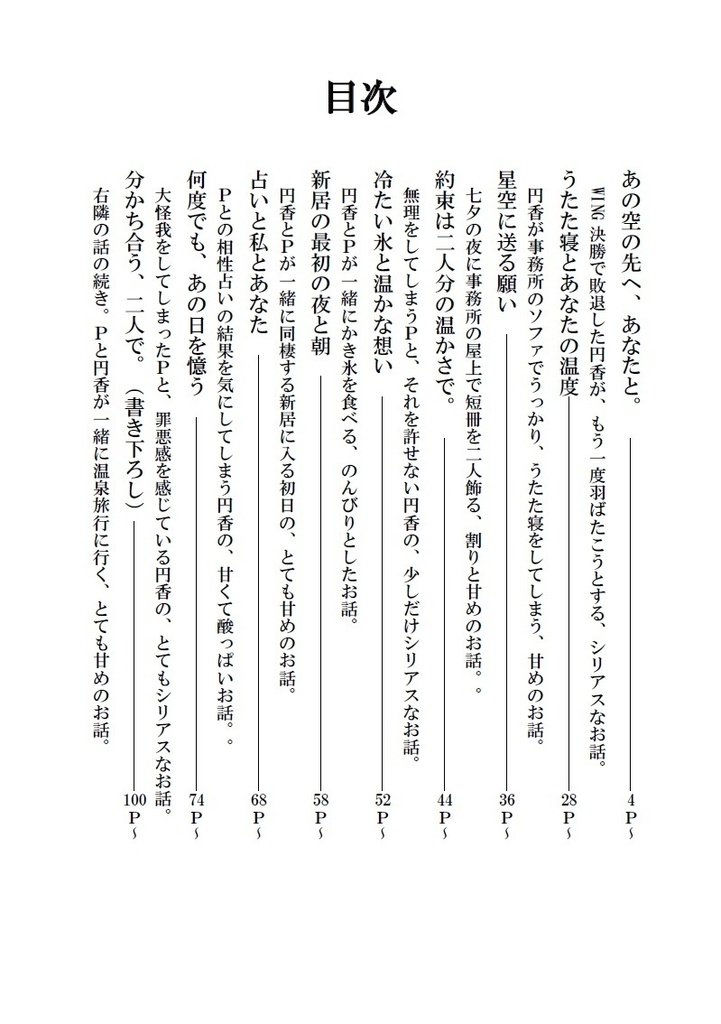 目次
あの空の先へ、あなたと。 4P～
WING 決勝で敗退した円香が、もう一度羽ばたこうとする、シリアスなお話。
うたた寝とあなたの温度 28P～
円香が事務所のソファでうっかり、うたた寝をしてしまう、甘めのお話。
星空に送る願い 36P～
七夕の夜に事務所の屋上で短冊を二人飾る、割りと甘めのお話。。
約束は二人分の温かさで。 44P～
無理をしてしまうPと、それを許せない円香の、少しだけシリアスなお話。
冷たい氷と温かな想い 52P～
円香とPが一緒にかき氷を食べる、のんびりとしたお話。
新居の最初の夜と朝 58P～
円香とPが一緒に同棲する新居に入る初日の、とても甘めのお話。
占いと私とあなた 68P～
Pとの相性占いの結果を気にしてしまう円香の、甘くて酸っぱいお話。。
何度でも、あの日を憶う 74P～
大怪我をしてしまったPと、罪悪感を感じている円香の、とてもシリアスなお話。
分かち合う、二人で。（書き下ろし） 100P～
右隣の話の続き。Pと円香が一緒に温泉旅行に行く、とても甘めのお話。